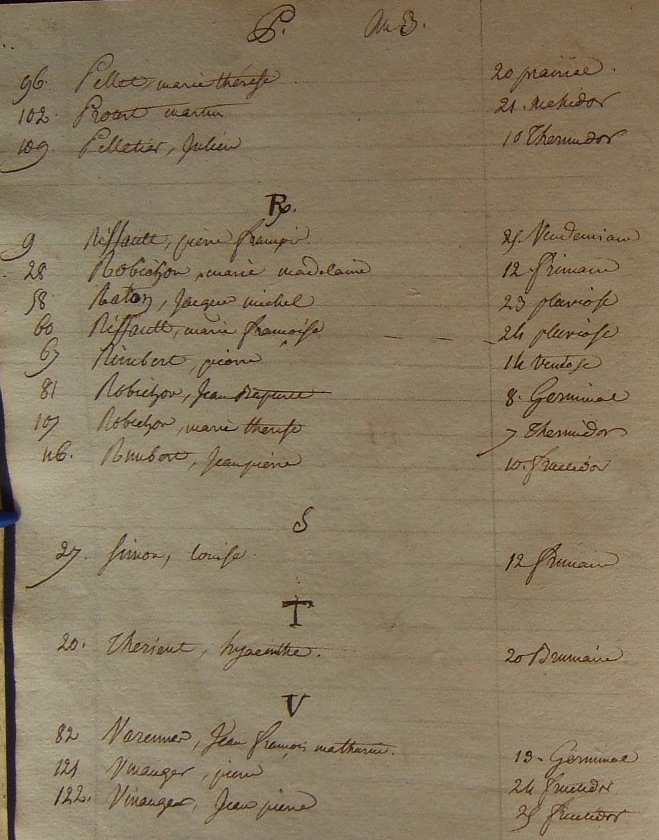 P. An 3.
96 Pellet, marie thérèse 20 prairial.
102. Prout martin 21. Messidor
109. Pelletier, Julien 10 Thermidor
R.
9 Riffault, pierre françois 25 Vendemiaire
28 Robichon, marie madelaine 12 frimaire
58 Raton, Jacque michel 23 pluviose
60 Riffault, marie françoise 24 pluviose
67 Rimbert, pierre 14 Ventose
81 Robichon, Jean Baptiste 8. Germinal
107 Robichon, marie therese 7 Thermidor
116. Rimbert, Jean pierre 10. fructidor
S
27. Simon, louise. 12 frimaire
T
20. hyacinthe. 20 Brumaire
V
82 Varennes, Jean françois mathurin. 13. Germinal
121 Vinanger, pierre 24 fructidor
122. Vinanger, Jean pierre 25 fructidor